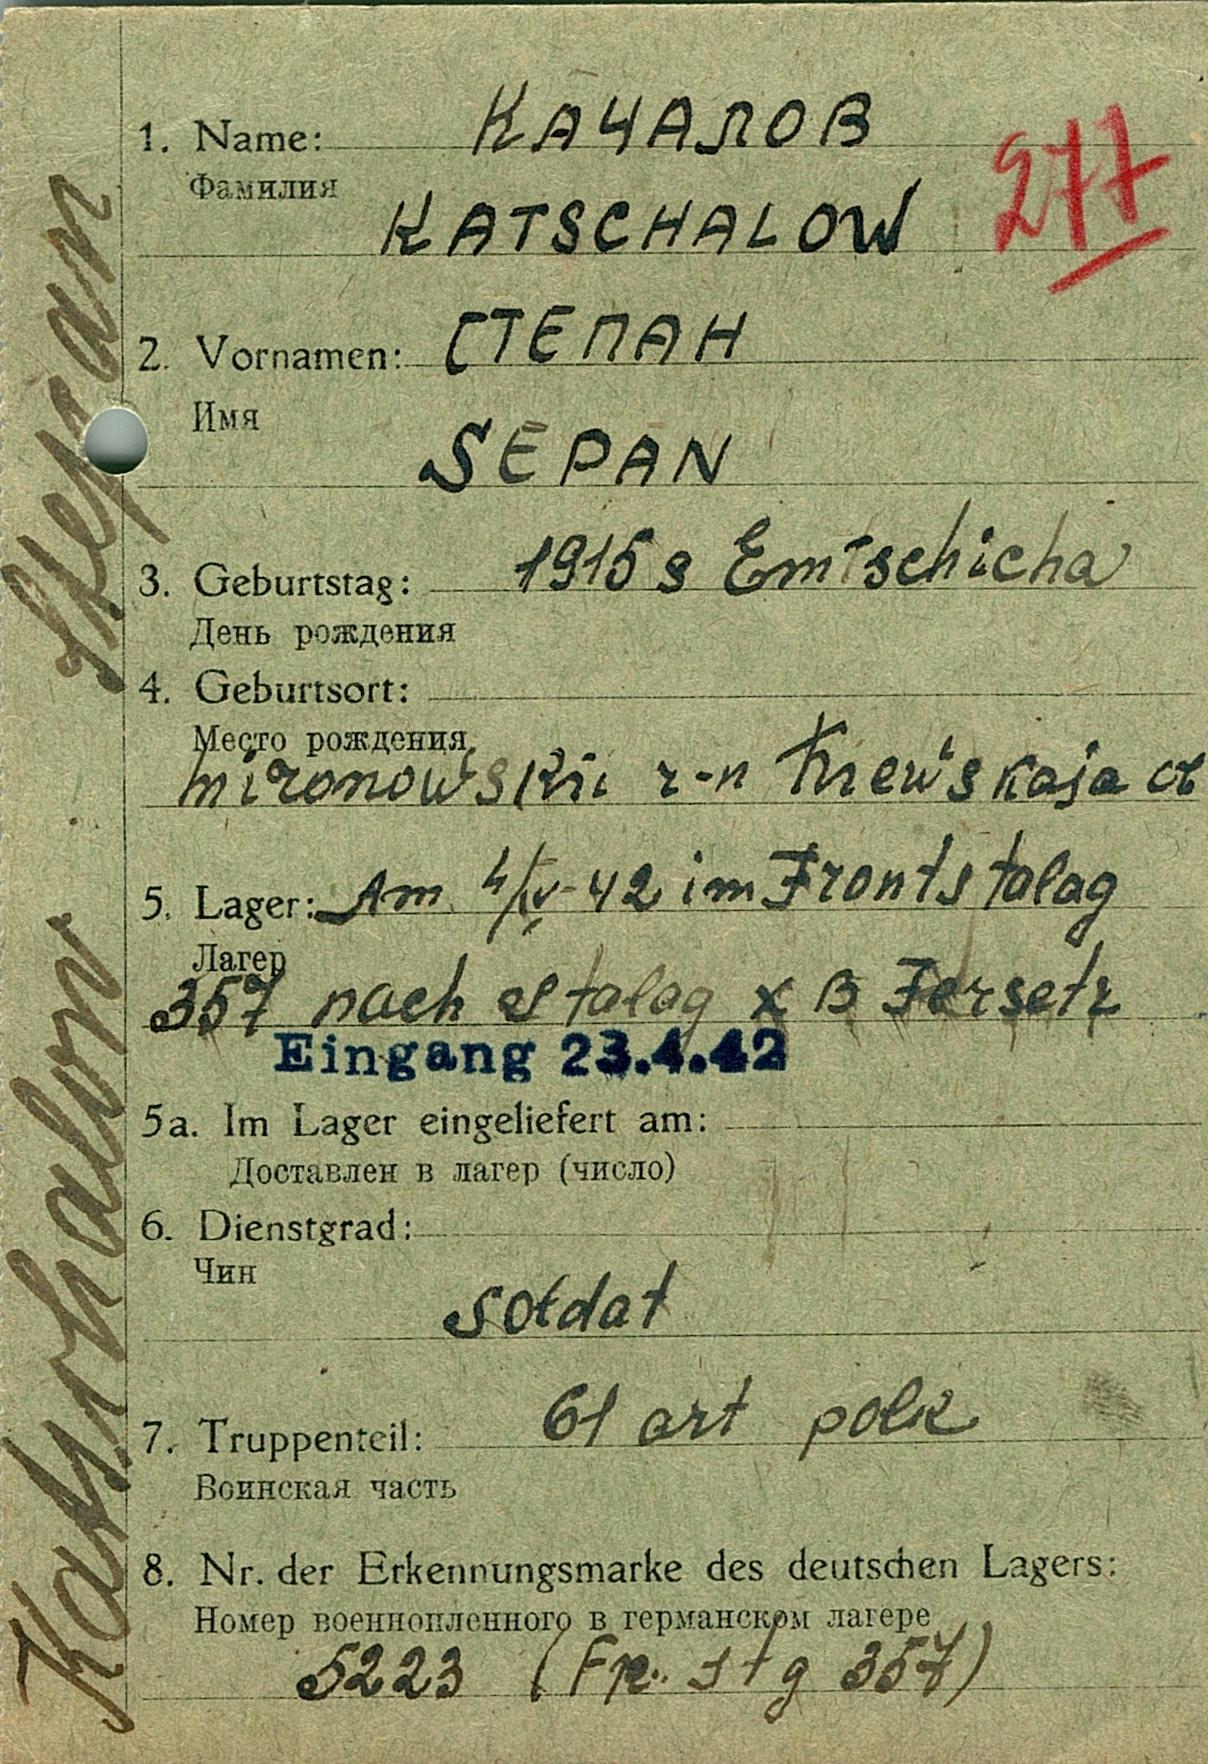 1. Name: КАЧАЛОВ
Фамилия
277
KATSCHALOW
2. Vornamen: СТЕПАН
Имя
SEPAN
3. Geburtstag: 1915 s Emtschicha
День рождения
4. Geburtsort:
Место рождения
mironowskii r-n Kiewskaja ob
5. Lager: Am 4/IV-42 im Frontstalag
Лагер
357 nach Stalag X B Fersetz
Eingang 23.4.42
5a. Im Lager eingeliefert am:
Доставлен в лагер (число)
6. Dienstgrad:
Чин
soldat
7. Truppenteil: 61 art polk
Воинская часть
8. Nr. der Erkennungsmarke des deutschen Lagers:
Номер военнопленного в германском лагере
5223 (Fr. stg 357)
Katschalow Stepan